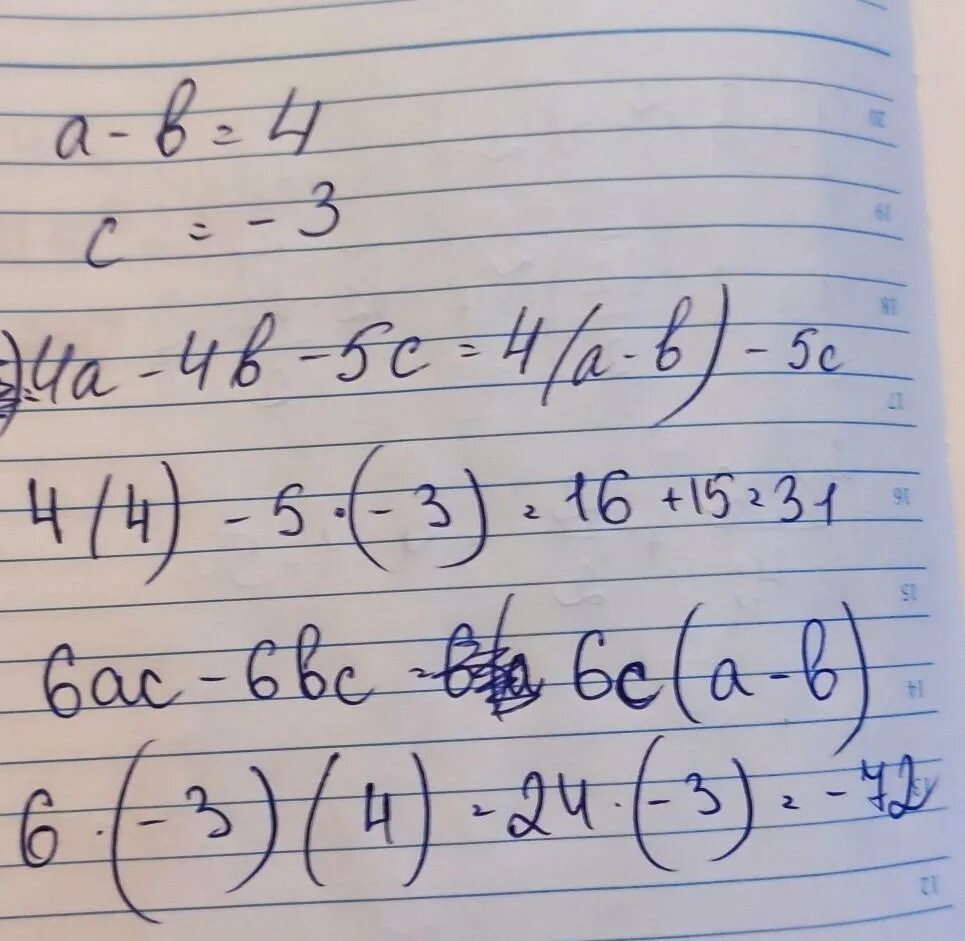 a - b = 4
c = - 3
4a - 4b - 5c = 4(a - b) - 5c
4(4) - 5 · (- 3) = 16 + 15 = 31
6ac - 6bc = 6c(a - b)
6 · (- 3)(4) = 24 · (- 3) = - 72
20
19
18
17
16
15
14
13
12